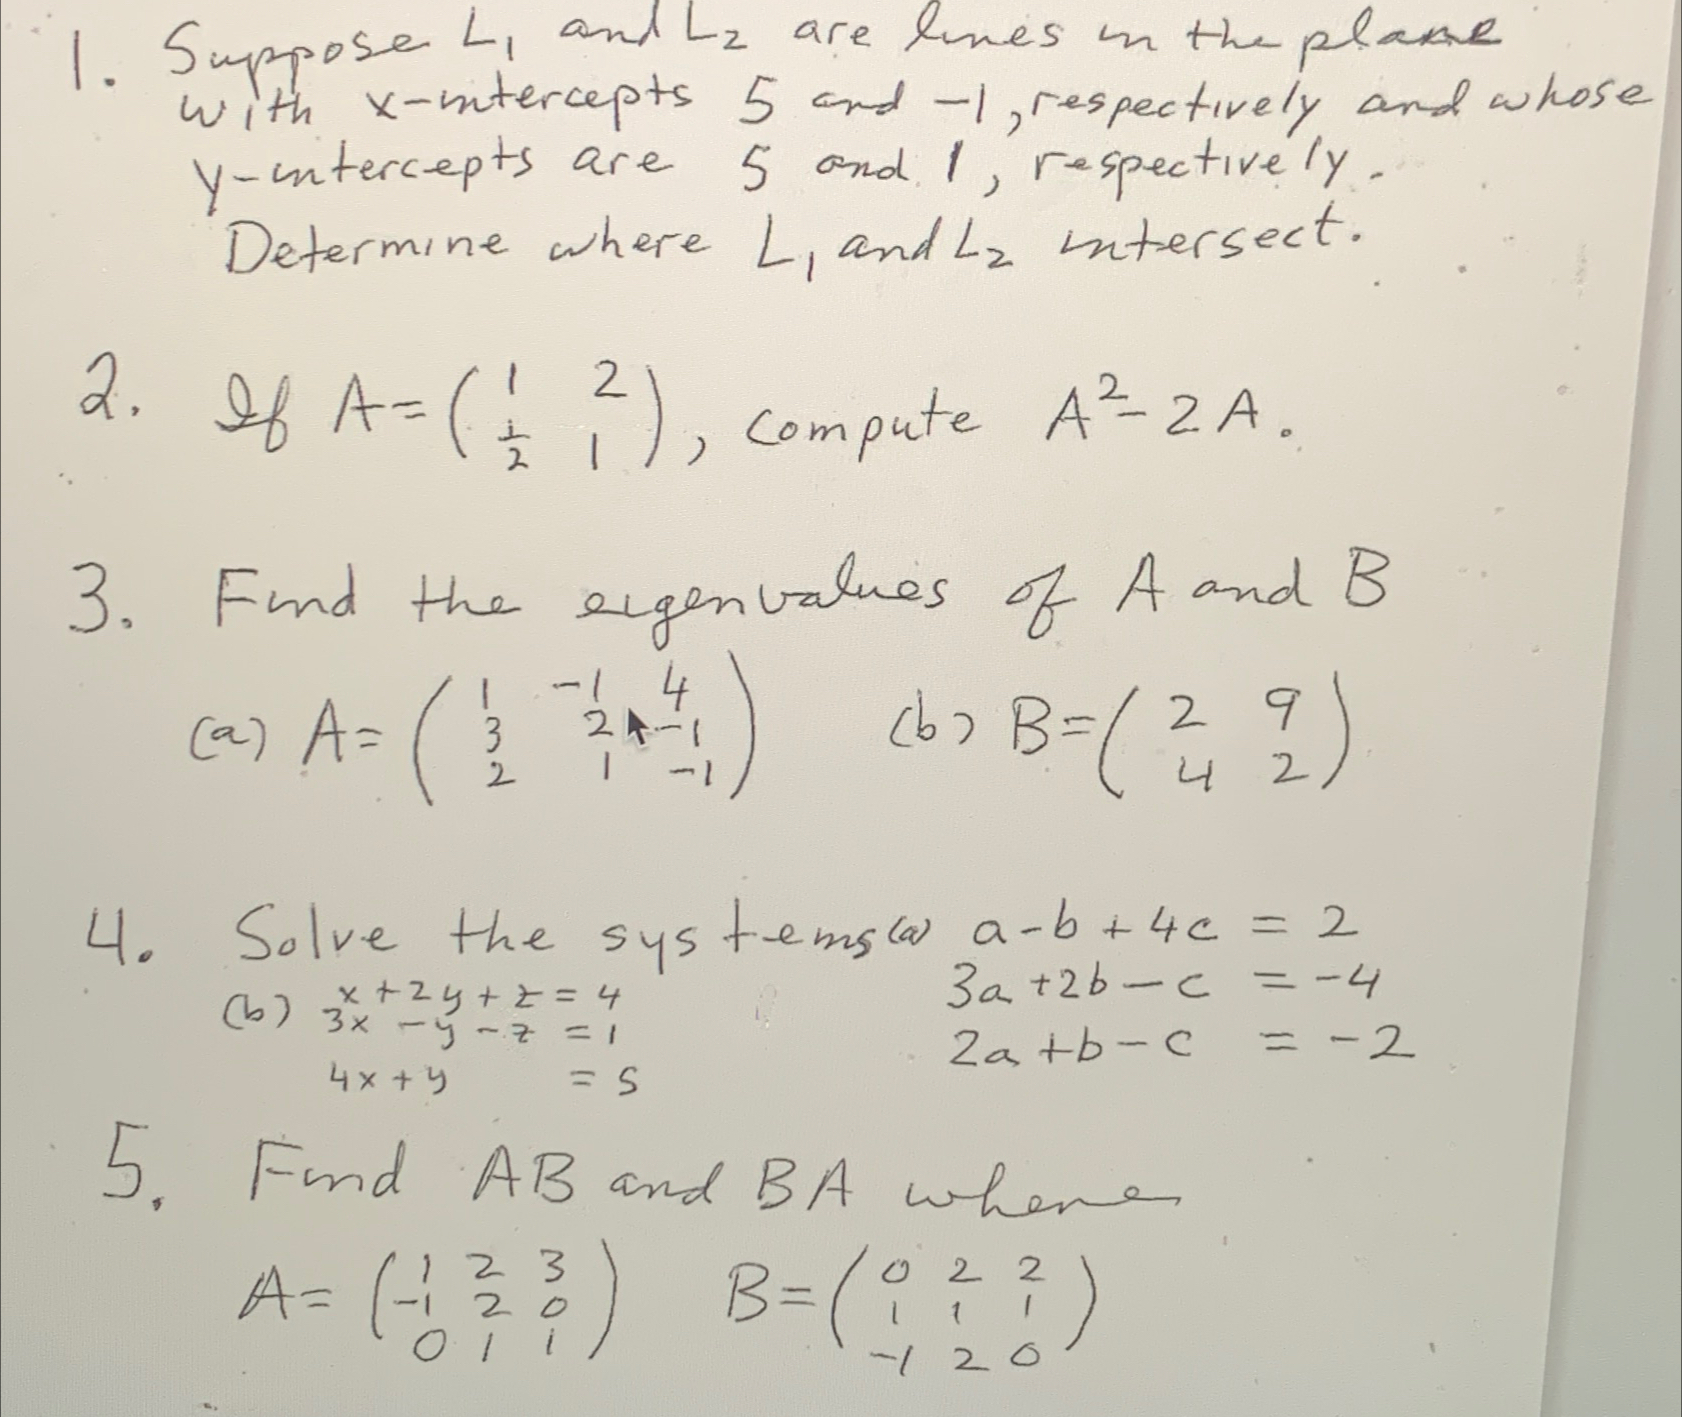 1. Suppose L₁ and L₂ are lines in the plane
with x-intercepts 5 and -1, respectively and whose
y-intercepts are 5 and 1, respectively.
Determine where L₁ and L₂ intersect.
2. If A = ( 1 2 ; 1/2 1 ), compute A² - 2A.
3. Find the eigenvalues of A and B
(a) A = ( 1 -1 4 ; 3 2 -1 ; 2 1 -1 ) (b) B = ( 2 9 ; 4 2 )
4. Solve the systems (a) a - b + 4c = 2
3a + 2b - c = -4
2a + b - c = -2
(b) x + 2y + z = 4
3x - y - z = 1
4x + y = 5
5. Find AB and BA where
A = ( 1 2 3 ; -1 2 0 ; 0 1 1 ) B = ( 0 2 2 ; 1 1 1 ; -1 2 0 )